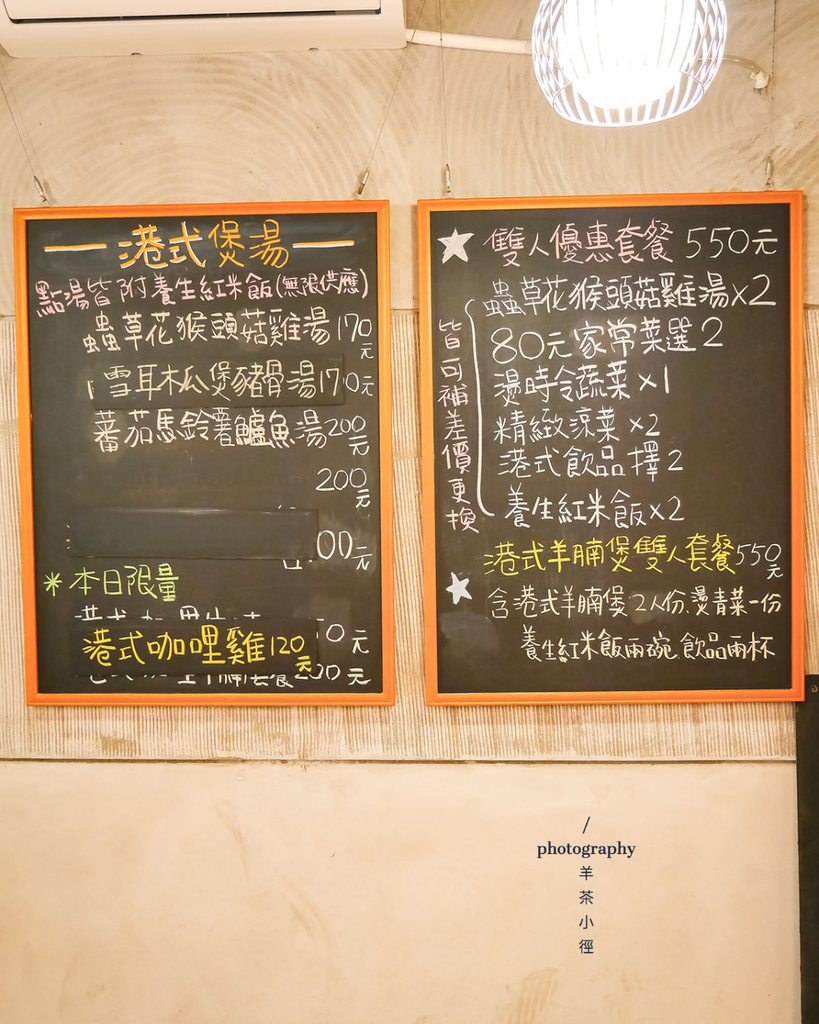 港式煲湯
點湯皆附養生紅米飯(無限供應)
蟲草花猴頭菇雞湯170元
雪耳木瓜煲豬骨湯170元
蕃茄馬鈴薯鱸魚湯200元
200元
00元
*本日限量
0元
港式咖哩雞120元
200元
★雙人優惠套餐 550元
蟲草花猴頭菇雞湯x2
80元家常菜選2
燙時令蔬菜x1
精緻涼菜x2
港式飲品擇2
養生紅米飯x2
皆可補差價更換
港式羊腩煲雙人套餐550元
★含港式羊腩煲2人份、燙青菜一份
養生紅米飯兩碗 飲品兩杯
/
photography
羊茶小徑